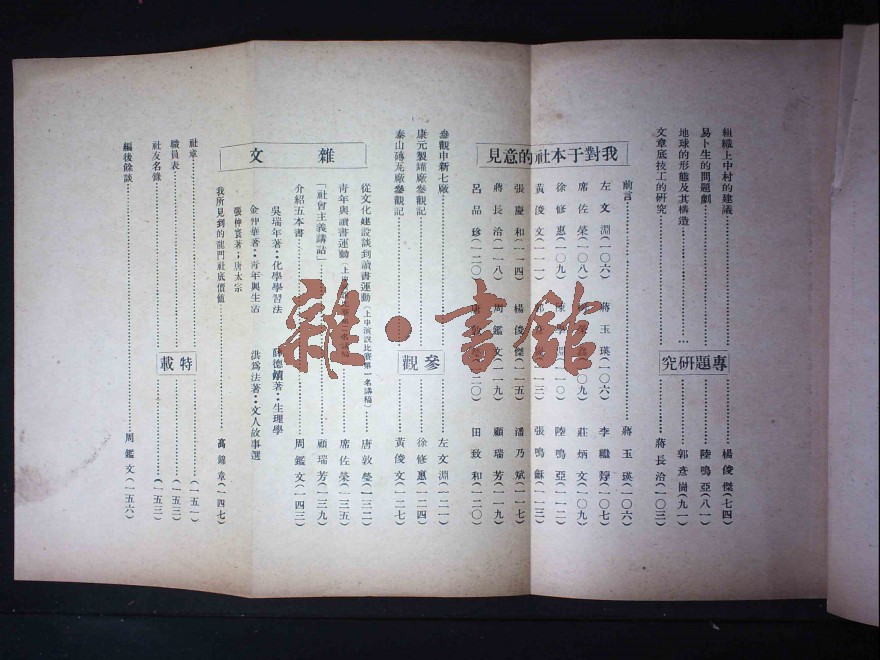 專題研究
組織上中村的建議 楊俊傑(七四)
易卜生的問題劇 陸鳴亞(八一)
地球的形態及其構造 郭彥崗(九一)
文章底技工的研究 蔣長洽(一〇三)
我對于本社的意見
前言 蔣玉瑛(一〇六)
左文淵(一〇六) 蔣玉瑛(一〇六) 李繼靜(一〇七)
席佐榮(一〇八) 莊炳文(一〇九)
徐修惠(一〇九) 陸鳴亞(一一二)
黃俊文(一一一) 張鳴龢(一一三)
張慶和(一一四) 楊俊傑(一一五) 潘乃斌(一一七)
蔣長洽(一一八) 周鑑文(一一九) 顧瑞芳(一一九)
呂品珍(一二〇) 唐敦 (一二〇) 田致和(一二〇)
參觀
參觀申新七廠 左文淵(一二一)
康元製罐廠參觀記 徐修惠(一二四)
泰山磚瓦廠參觀記 黃俊文(一二七)
雜文
從文化建設談到讀書運動(上中演說比賽第一名講稿) 唐敦瑩(一三二)
青年與讀書運動 席佐榮(一三五)
「社會主義講話」 顧瑞芳(一三九)
介紹五本書 周鑑文(一四三)
吳瑞年著:化學學習法 德 著:生理學
金仲華著:青年與生活 洪爲法著:文人故事選
張仲寰著;唐太宗
我所見到的龍門社底價値 高錦章(一四七)
特載
社章 (一五一)
職員表 (一五三)
社友名錄 (一五三)
編後餘談 周鑑文(一五六)
雜·書館